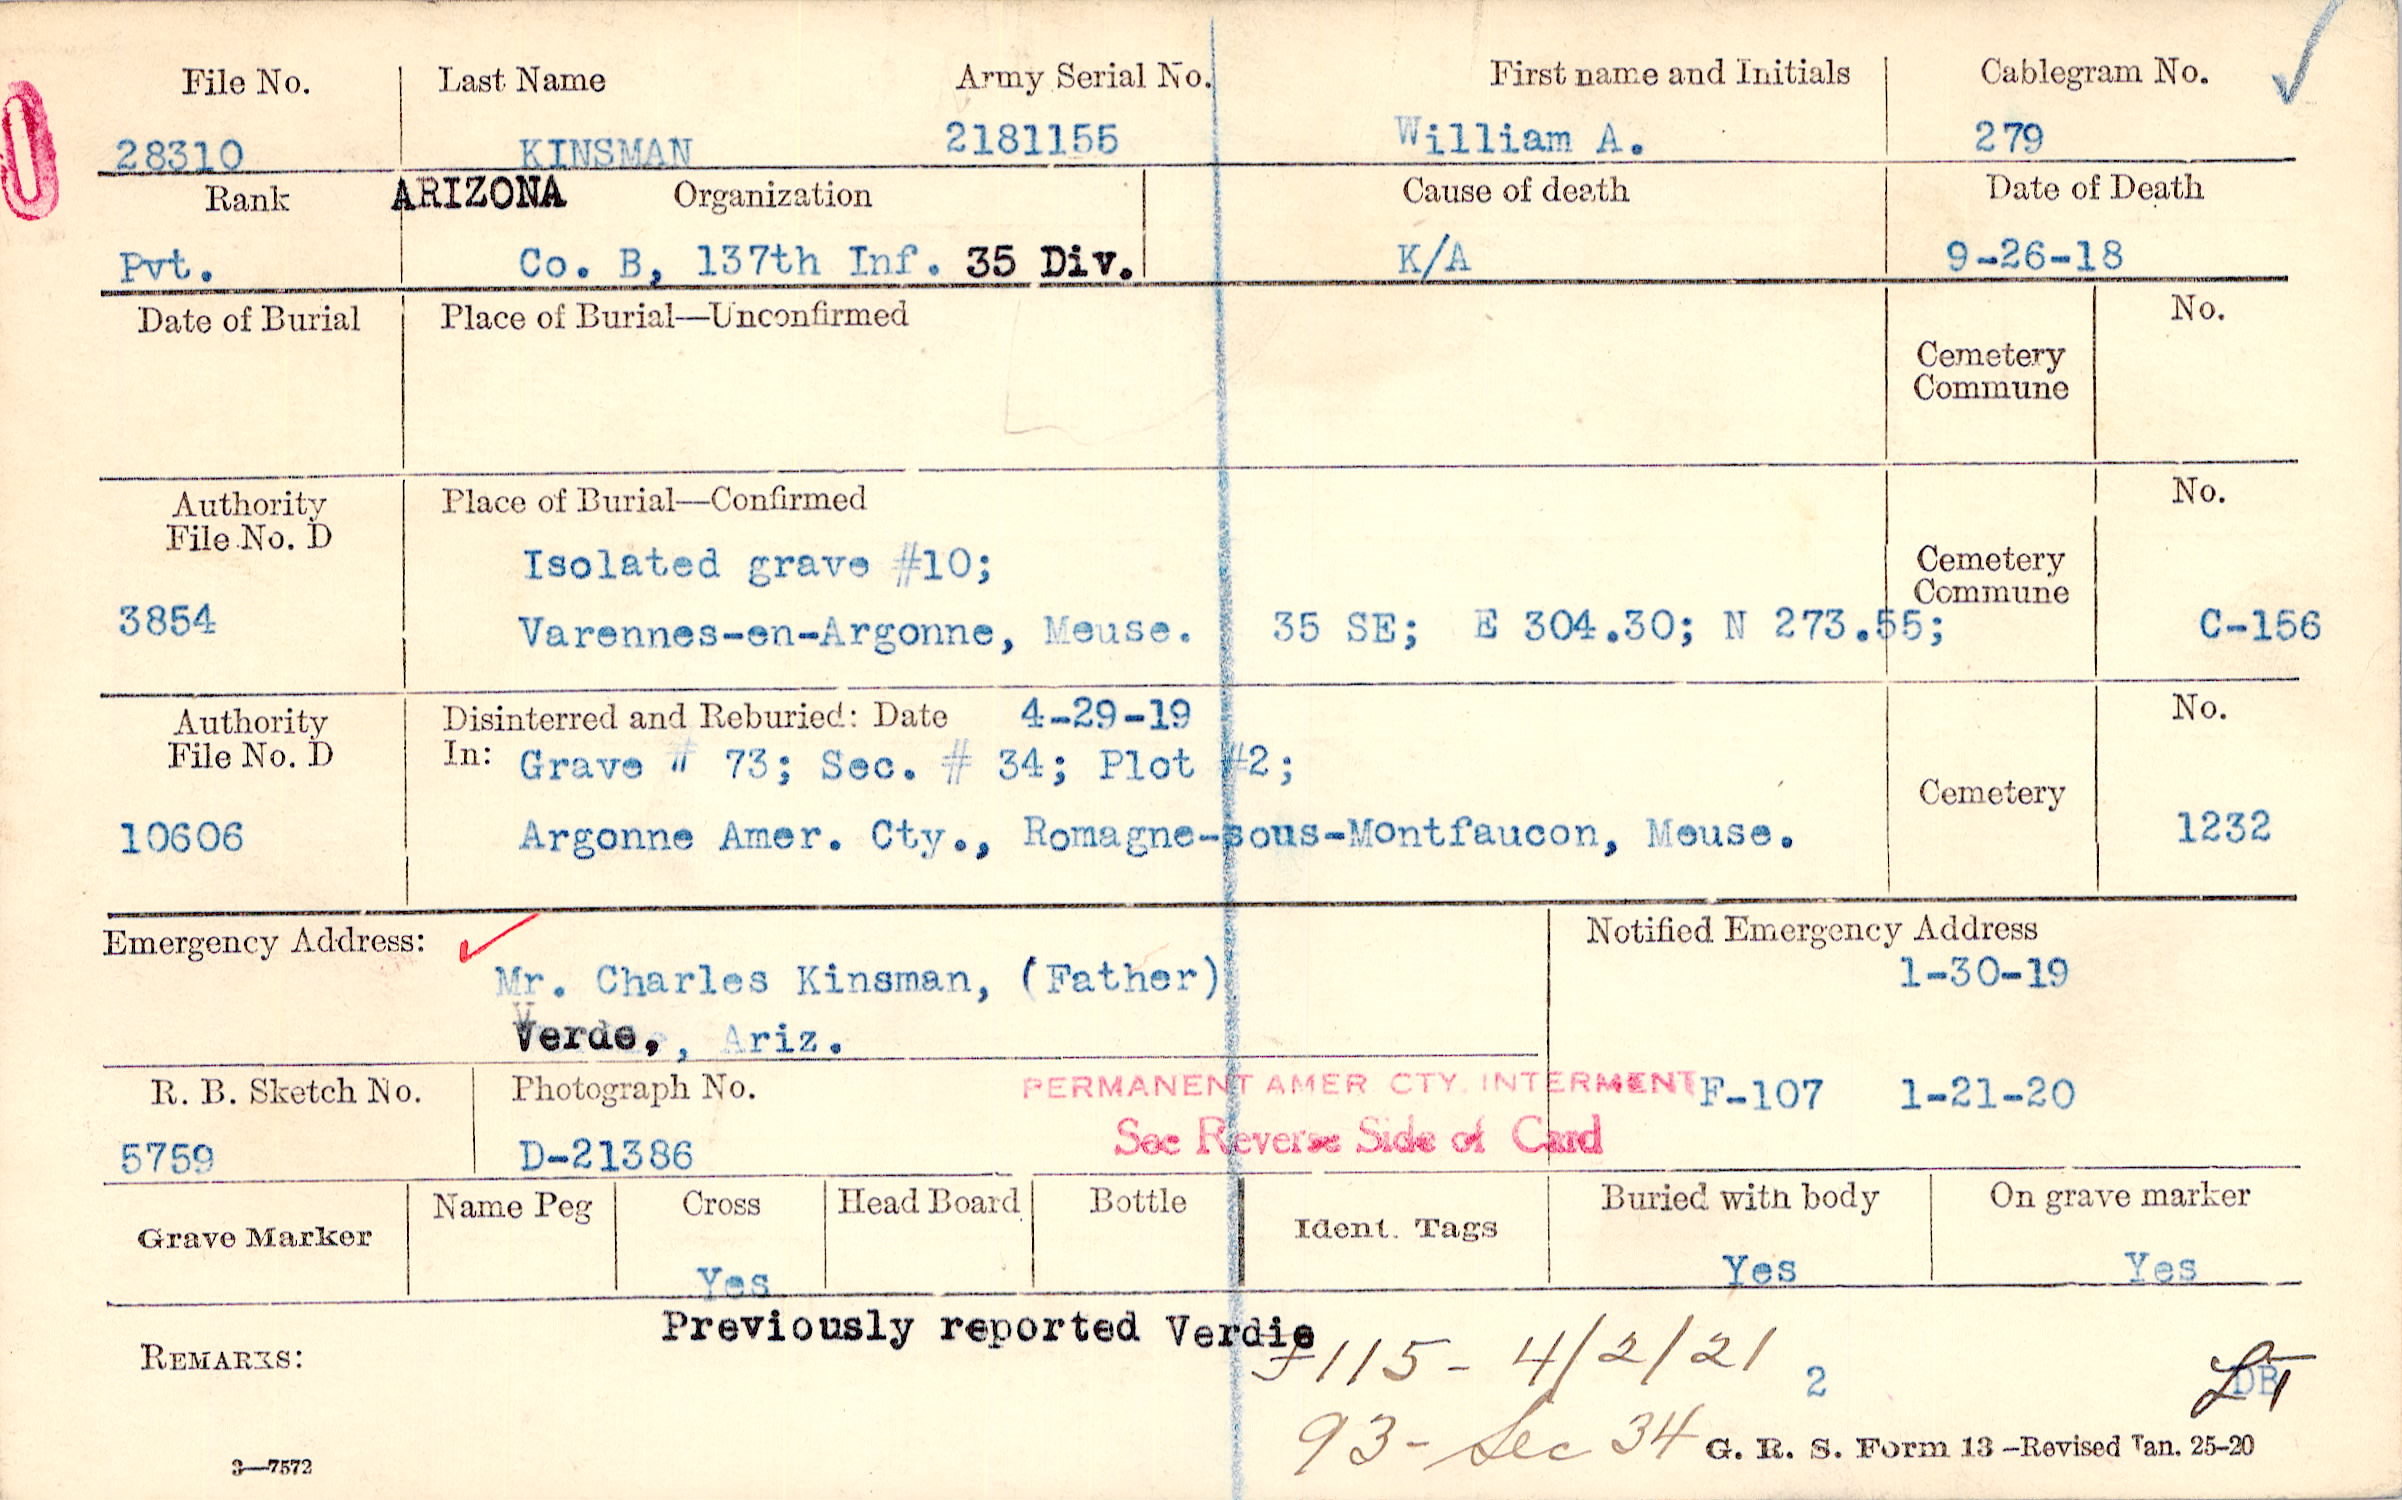 File No. Last Name Army Serial No. First name and Initials Cablegram No.
28310 KINSMAN 2181155 William A. 279
Rank ARIZONA Organization Cause of death Date of Death
Pvt. Co. B, 137th Inf. 35 Div. K/A 9-26-18
Date of Burial Place of Burial—Unconfirmed No.
Cemetery
Commune
Authority Place of Burial—Confirmed No.
File No. D
Isolated grave #10; Cemetery
Commune
3854 Varennes-en-Argonne, Meuse. 35 SE; E 304.30; N 273.55; C-156
Authority Disinterred and Reburied: Date 4-29-19 No.
File No. D In: Grave # 73; Sec. # 34; Plot #2;
Cemetery
10606 Argonne Amer. Cty., Romagne-sous-Montfaucon, Meuse. 1232
Emergency Address: Notified Emergency Address
Mr. Charles Kinsman, (Father) 1-30-19
Verde, , Ariz.
R. B. Sketch No. Photograph No. PERMANENT AMER. CTY. INTERMENT F-107 1-21-20
5759 D-21386 See Reverse Side of Card
Grave Marker Name Peg Cross Head Board Bottle Ident. Tags Buried with body On grave marker
Yes Yes Yes
Previously reported Verdie
REMARKS: 115- 4/2/21 2
93- Sec 34 G. R. S. Form 13—Revised Jan. 25-20
3—7572